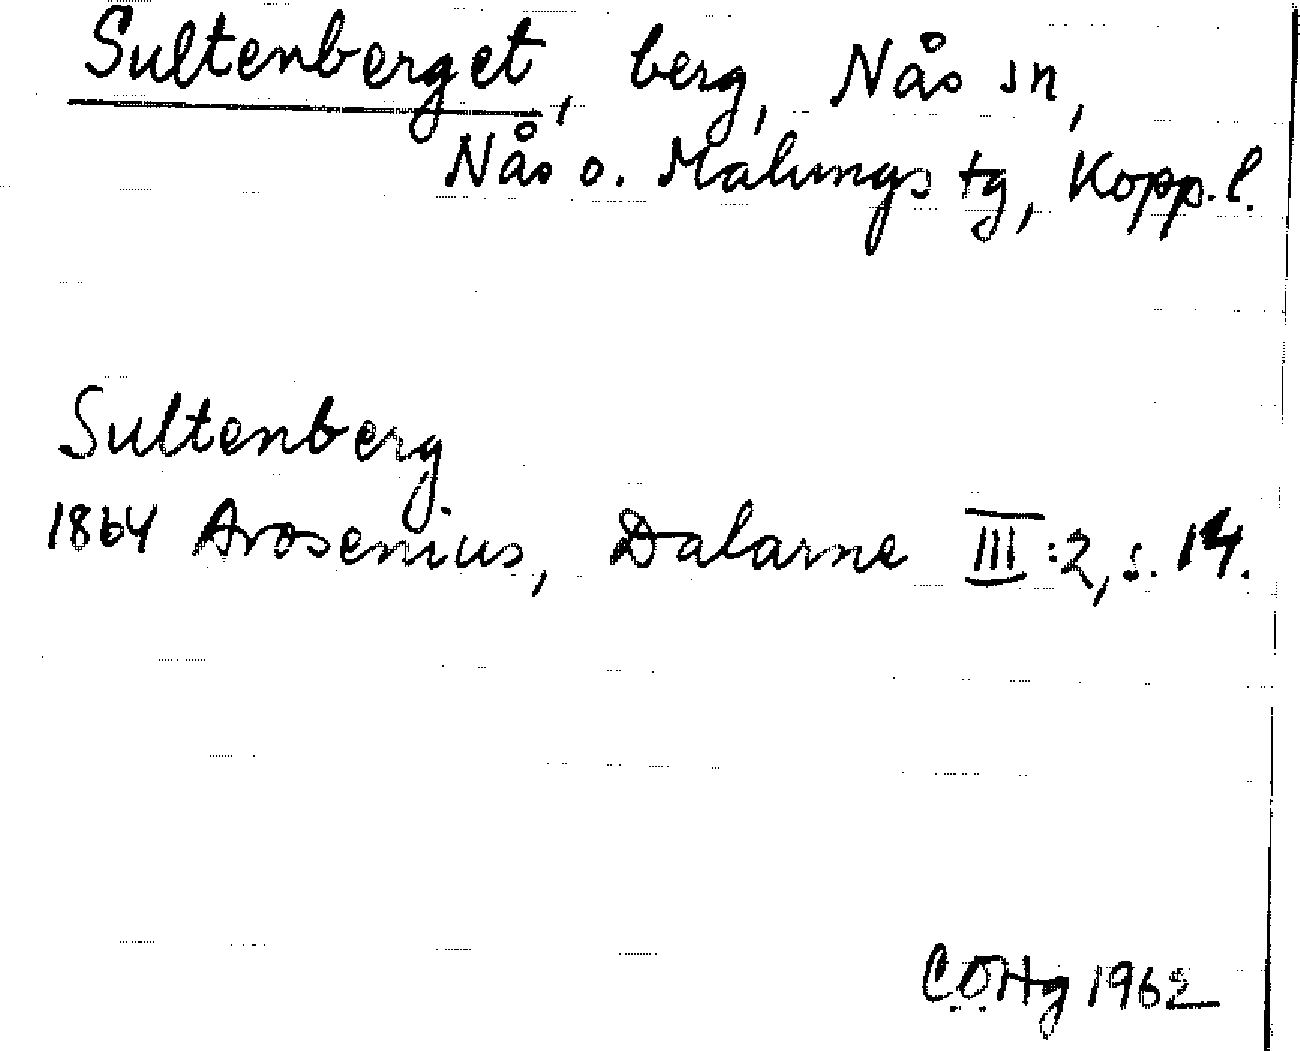 Sultenberget, berg, Nås sn,
Nås o. Malungs tg, Kopp. l.
Sultenberg
1864 Arosenius, Dalarne III:2, s. 14.
C.O.Hg 1962